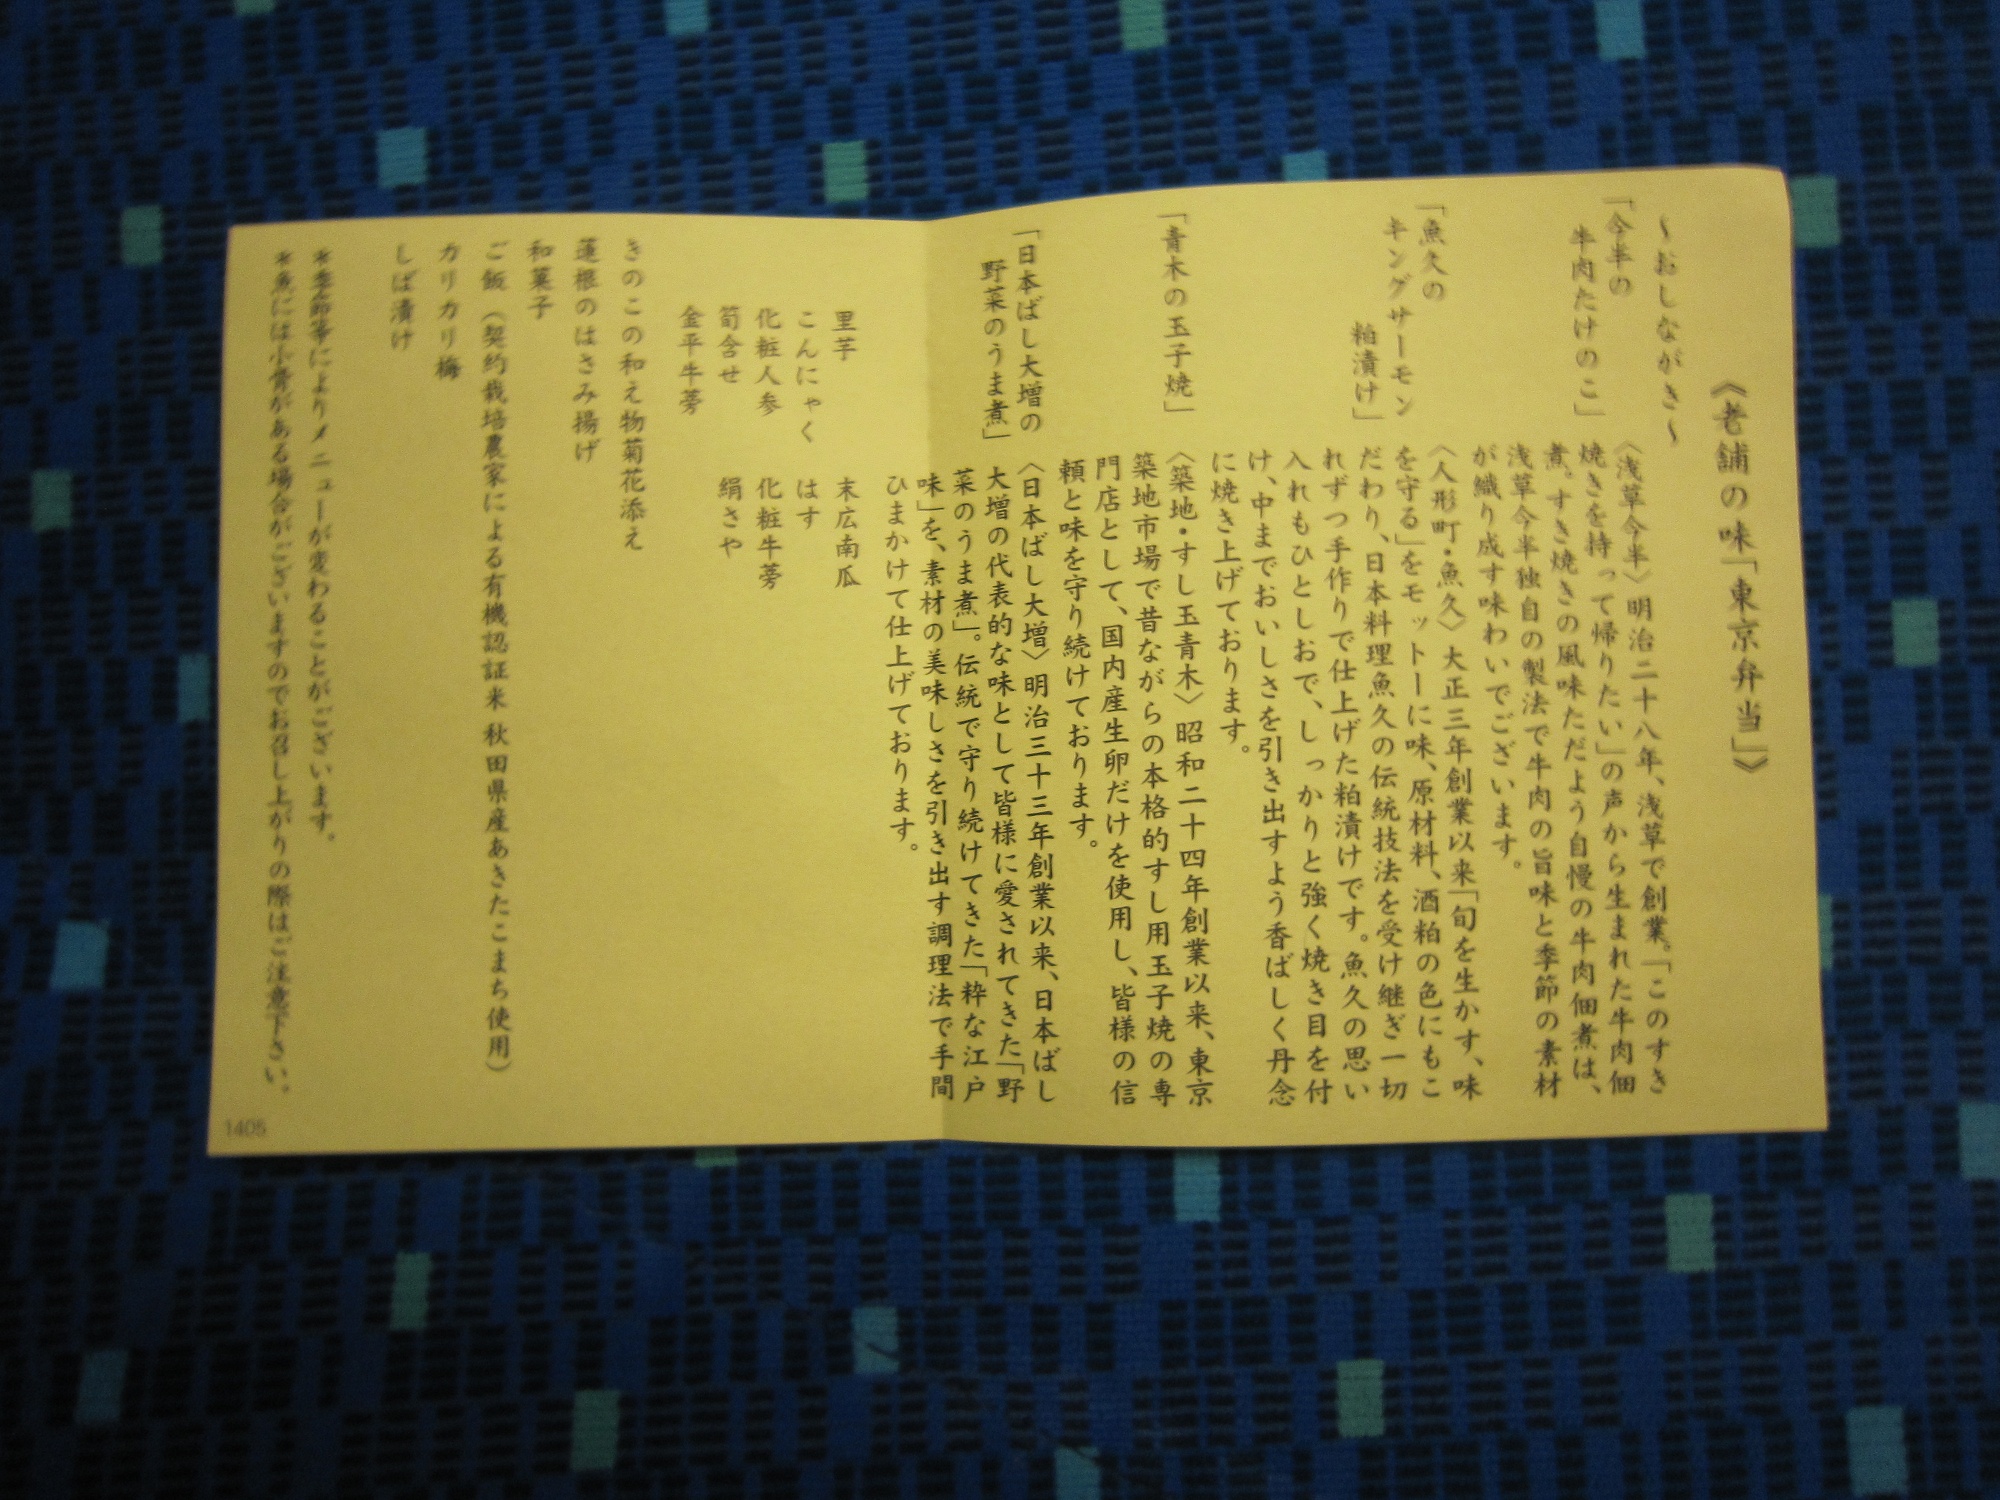 《老舗の味「東京弁当」》
～おしながき～
「今半の
牛肉たけのこ」
〈浅草今半〉明治二十八年、浅草で創業。「このすき
焼きを持って帰りたい」の声から生まれた牛肉佃
煮。すき焼きの風味ただよう自慢の牛肉佃煮は、
浅草今半独自の製法で牛肉の旨味と季節の素材
が織り成す味わいでございます。
「魚久の
キングサーモン
粕漬け」
〈人形町・魚久〉大正三年創業以来「旬を生かす、味
を守る」をモットーに味、原材料、酒粕の色にもこ
だわり、日本料理魚久の伝統技法を受け継ぎ一切
れずつ手作りで仕上げた粕漬けです。魚久の思い
入れもひとしおで、しっかりと強く焼き目を付
け、中までおいしさを引き出すよう香ばしく丹念
に焼き上げております。
「青木の玉子焼」
〈築地・すし玉青木〉昭和二十四年創業以来、東京
築地市場で昔ながらの本格的すし用玉子焼の専
門店として、国内産生卵だけを使用し、皆様の信
頼と味を守り続けております。
「日本ばし大増の
野菜のうま煮」
〈日本ばし大増〉明治三十三年創業以来、日本ばし
大増の代表的な味として皆様に愛されてきた「野
菜のうま煮」。伝統で守り続けてきた「粋な江戸
味」を、素材の美味しさを引き出す調理法で手間
ひまかけて仕上げております。
里芋 末広南瓜
こんにゃく はす
化粧人参 化粧牛蒡
筍含せ 絹さや
金平牛蒡
きのこの和え物菊花添え
蓮根のはさみ揚げ
和菓子
ご飯（契約栽培農家による有機認証米 秋田県産あきたこまち使用）
カリカリ梅
しば漬け
＊季節等によりメニューが変わることがございます。
＊魚には小骨がある場合がございますのでお召し上がりの際はご注意下さい。
1405